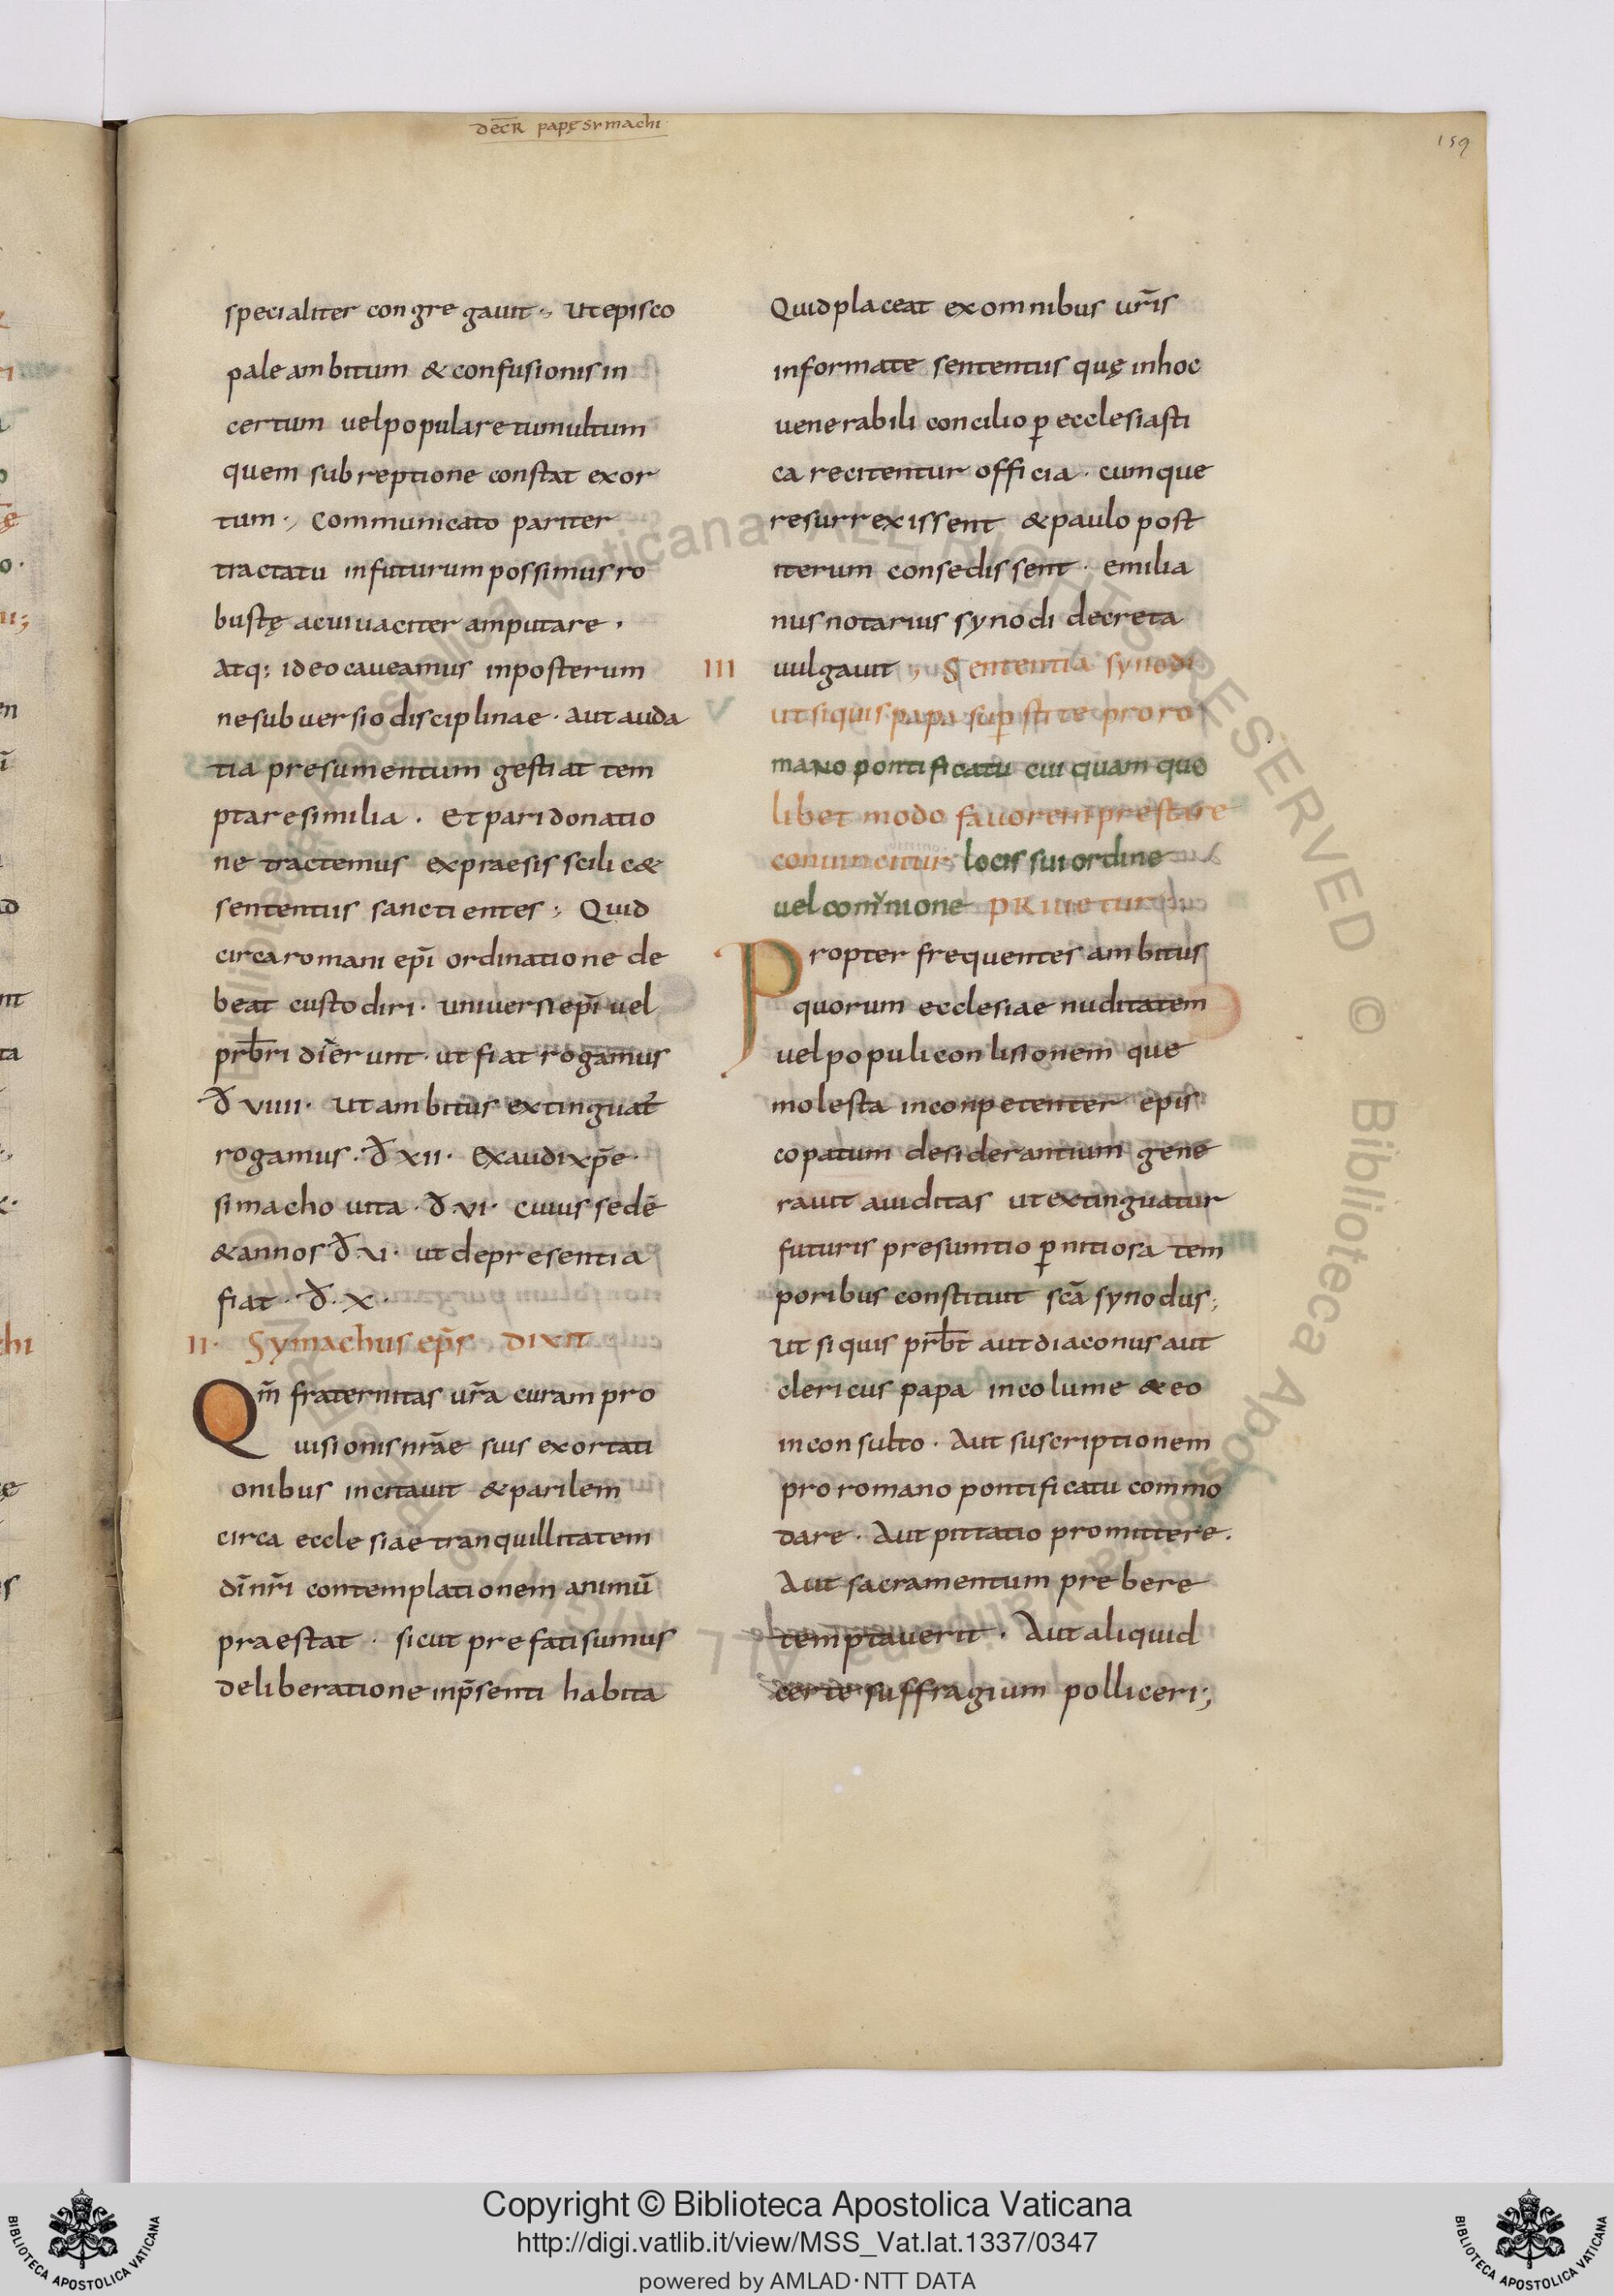 decr̄ papę sẏmachi
159
specialiter congregauit ·, ut episco
pale ambitum & confusionis in
certum uel populare tumultum
quem subreptione constat exor
tum ·, Communicato pariter
tractatu in futurum possimus ro
bustę ac uiuaciter amputare ·
Atq; ideo caueamus inposterum
ne subuersio disciplinae · aut auda
tia presumentum gestiat tem
ptare simila · Et pari donatio
ne tractemus expraesis scilic&
sententiis sancti entes ; Quid
circa romani ep̄i ordinatione de
beat custodiri · uniuersi ep̄i uel
prb̄ri dix̄erunt · ut fiat rogamus
đ viiii · ut ambitus extinguat̄
rogamus · đ xii · Exaudi xp̄e ·
simacho uita · đ vi · cuius sedē
& annos đ xi · ut depresentia
fiat · đ · x ·
II · Symachus ep̄s dixit
Qm̄ fraternitas ur̄a curam pro
uisionis nr̄ae suis exortati
onibus incitauit & parilem
circa ecclesiae tranquillitatem
dī nr̄i contemplationem animū
praestat · sicut prefati sumus
deliberatione inp̄senti habita
Quid placeat ex omnibus ur̄is
informate sententiis quę inhoc
uenerabili concilio ꝑ ecclesiasti
ca recitentur officia · cumque
resurrexissent & paulo post
iterum consedissent · emilia
nus notarius synodi decreta
III uulgauit ; Sententia synodi
V ut siquis papa suꝑstite pro ro
mano pontificatu cuiquam quo
libet modo fauorem prestare
conuincitur locis sui ordine
uel com̄unione PRiuetur
Propter frequentes ambitus
quorum ecclesiae nuditatem
uel populi conlisionem que
molesta inconpetenter epis
copatum desiderantium gene
rauit auiditas ut extinguatur
futuris presumtio ꝑnitiosa tem
poribus constituit scā synodus ;
ut si quis prb̄t aut diaconus aut
clericus papa incolume & eo
inconsulto · Aut suscriptionem
pro romano pontificatu commo
dare · Aut pittatio promittere ·
Aut sacramentum prebere
temptauerit · Aut aliquid
certe suffragium polliceri ;
Copyright © Biblioteca Apostolica Vaticana
http://digi.vatlib.it/view/MSS_Vat.lat.1337/0347
powered by AMLAD·NTT DATA
BIBLIOTECA APOSTOLICA VATICANA
BIBLIOTECA APOSTOLICA VATICANA